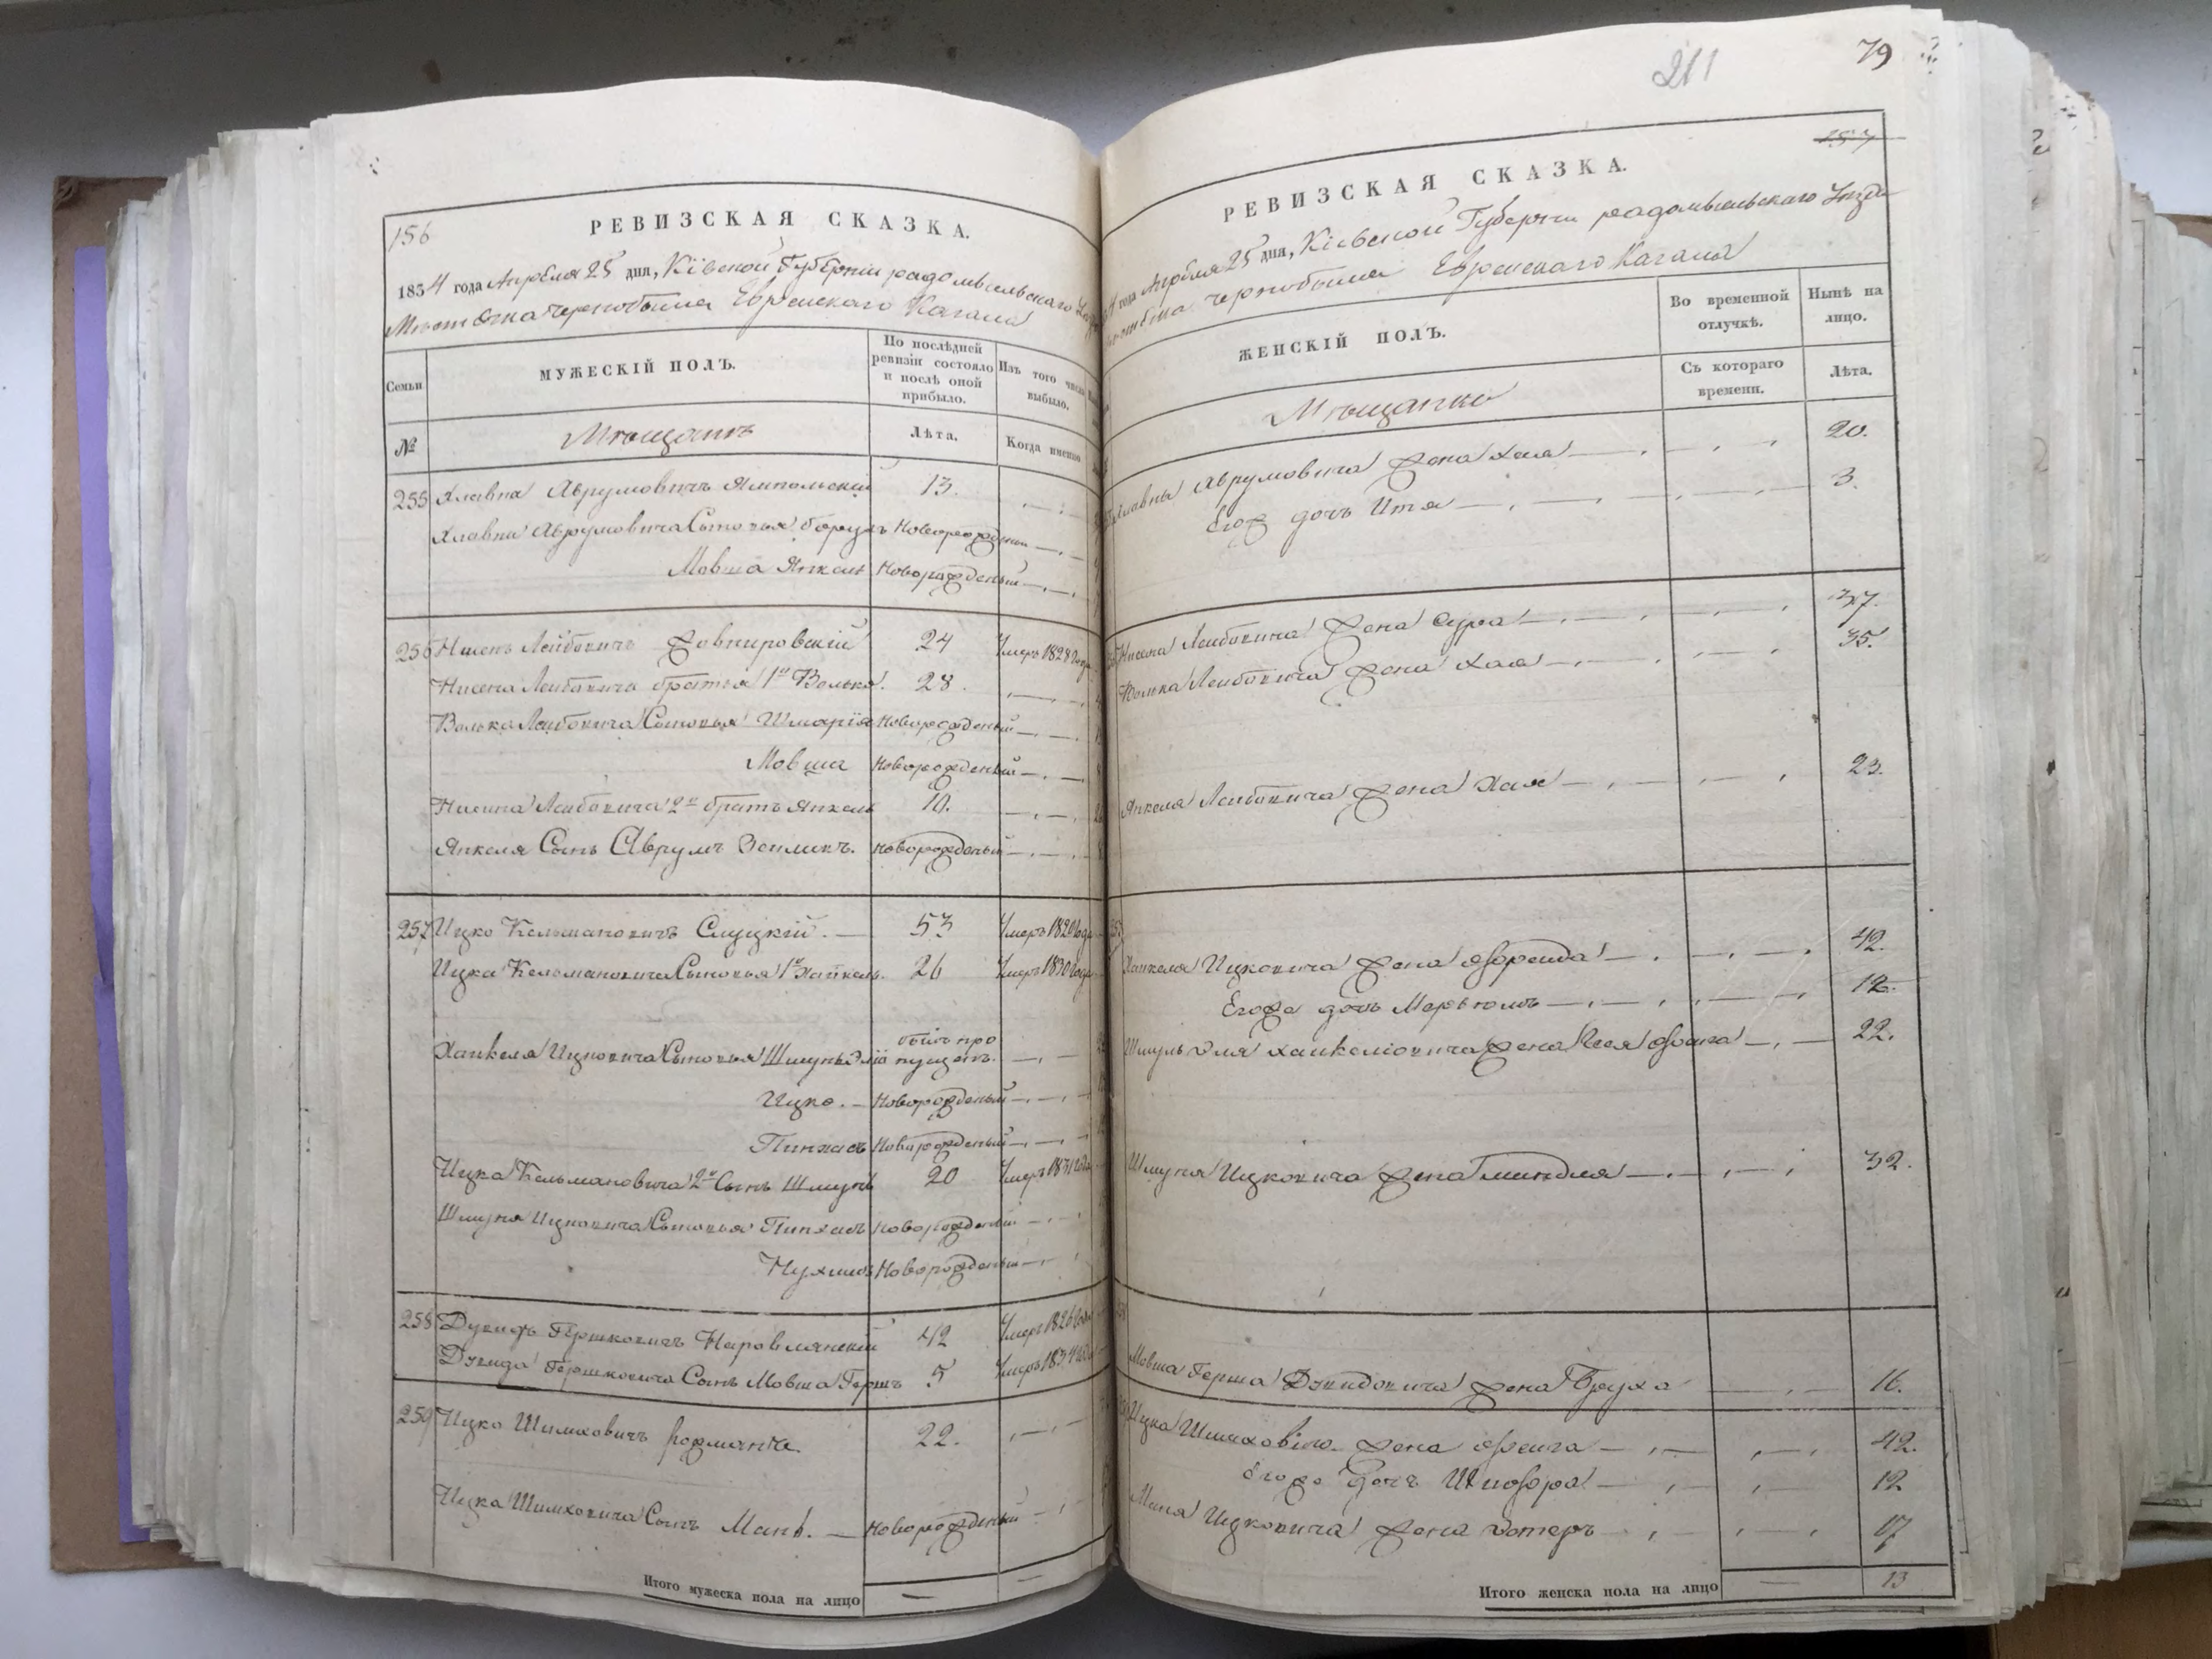 156
РЕВИЗСКАЯ СКАЗКА.
1834 года Апреля 25 дня, Кіевской Губерніи радомысльскаго
Местечка чернобыля Еврейскаго Кагала
Семьи
МУЖЕСКІЙ ПОЛЪ.
По послѣдней ревизіи состояло и послѣ оной прибыло.
Изъ того числа выбыло.
№
Мѣщанъ
Лѣта.
Когда именно
255 Хлавна Аврумовичъ Ямпольскій 13.
Хлавны Аврумовича Сыновья Борухъ Новорожденый
Мовша Янкель Новорожденый
256 Нисенъ Лейбовичъ 24 Умеръ 1828 года
Нисена Лейбовича братья 1й Волько. 28.
Волька Лейбовича Сыновья Шмарія Новорожденый
Мовша Новорожденый
Нисина Лейбовича 2й братъ Янкель 10.
Янкеля Сынъ Аврумъ Зейликъ. Новорожденый
257 Ицко Кельмановичъ Слуцкій. 53 Умеръ 1820 года
Ицка Кельмановича Сыновья 1й Хайкель. 26 Умеръ 1830 года
Хайкеля Ицковича Сыновья Шмуль Эля былъ пропущенъ.
Ицко. Новорожденый
Пинхасъ Новорожденый
Ицка Кельмановича 2й Сынъ Шмуль 20 Умеръ 1831 года
Шмуля Ицковича Сыновья Пинхасъ Новорожденый
Нухимъ Новорожденый
258 Дувидъ Гершковичъ Наровлянскій 42 Умеръ 1826 года
Дувида Гершковича Сынъ Мовша Гершъ 5 Умеръ 1834 года
259 Ицко Шимховичъ 22.
Ицка Шимховича Сынъ Мань. Новорожденый
Итого мужеска пола на лицо —
211
79
157
РЕВИЗСКАЯ СКАЗКА.
года Апреля 25 дня, Кіевской Губерніи радомысльскаго Уезда
чернобыля Еврейскаго Кагала
ЖЕНСКІЙ ПОЛЪ.
Во временной отлучкѣ.
Нынѣ на лицо.
Мѣщанки
Съ котораго времени.
Лѣта.
Хлавны Аврумовича жена Хая 20.
Его дочь Итя 3.
Нисена Лейбовича жена Сура 37.
Волька Лейбовича жена Хая 35.
Янкеля Лейбовича жена Хая 23.
Хайкеля Ицковича жена Фрейда 42.
Его дочь Марьямъ 12.
Шмуль Эля Хайкелювича жена Фейга 22.
Шмуля Ицковича жена Миндля 32.
Мовша Герша Дувидовича жена Бруха 16.
Ицка Шимховича жена Фейга 42.
Его дочь Шифра 12
Маня Ицковича жена Эстеръ 17
Итого женска пола на лицо — 13